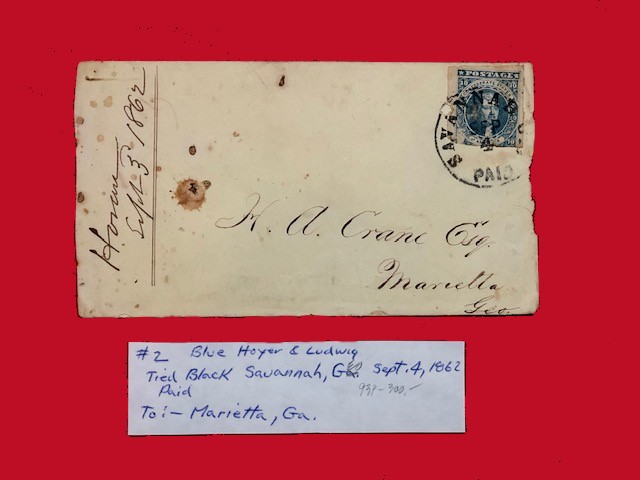 Sept 3 1862
POSTAGE
SAVANNAH
SEP
4
PAID
H. A. Crane Esq.
Marietta
Geo.
#2 Blue Hoyer & Ludwig
Tied Black Savannah, Ga. Sept. 4, 1862
Paid
To:- Marietta, Ga.